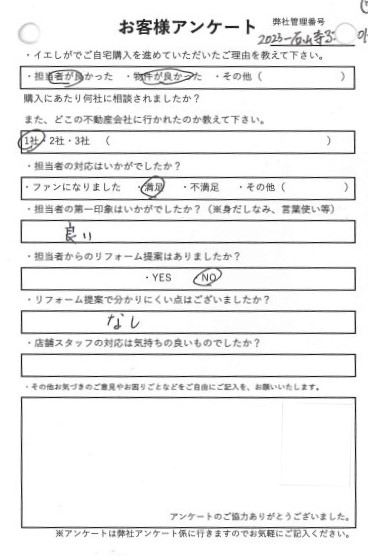 お客様アンケート
弊社管理番号
2023-石山寺3
・イエしがでご自宅購入を進めていただいたご理由を教えて下さい。
・担当者が良かった ・物件が良かった ・その他（ ）
購入にあたり何社に相談されましたか？
また、どこの不動産会社に行かれたのか教えて下さい。
1社・2社・3社 （ ）
・担当者の対応はいかがでしたか？
・ファンになりました ・満足 ・不満足 ・その他（ ）
・担当者の第一印象はいかがでしたか？（※身だしなみ、言葉使い等）
良い
・担当者からのリフォーム提案はありましたか？
・YES ・NO
・リフォーム提案で分かりにくい点はございましたか？
なし
・店舗スタッフの対応は気持ちの良いものでしたか？
・その他お気づきのご意見やお困りごとなどをご自由にご記入を、お願いいたします。
アンケートのご協力ありがとうございました。
※アンケートは弊社アンケート係に行きますのでお気軽にご記入ください。